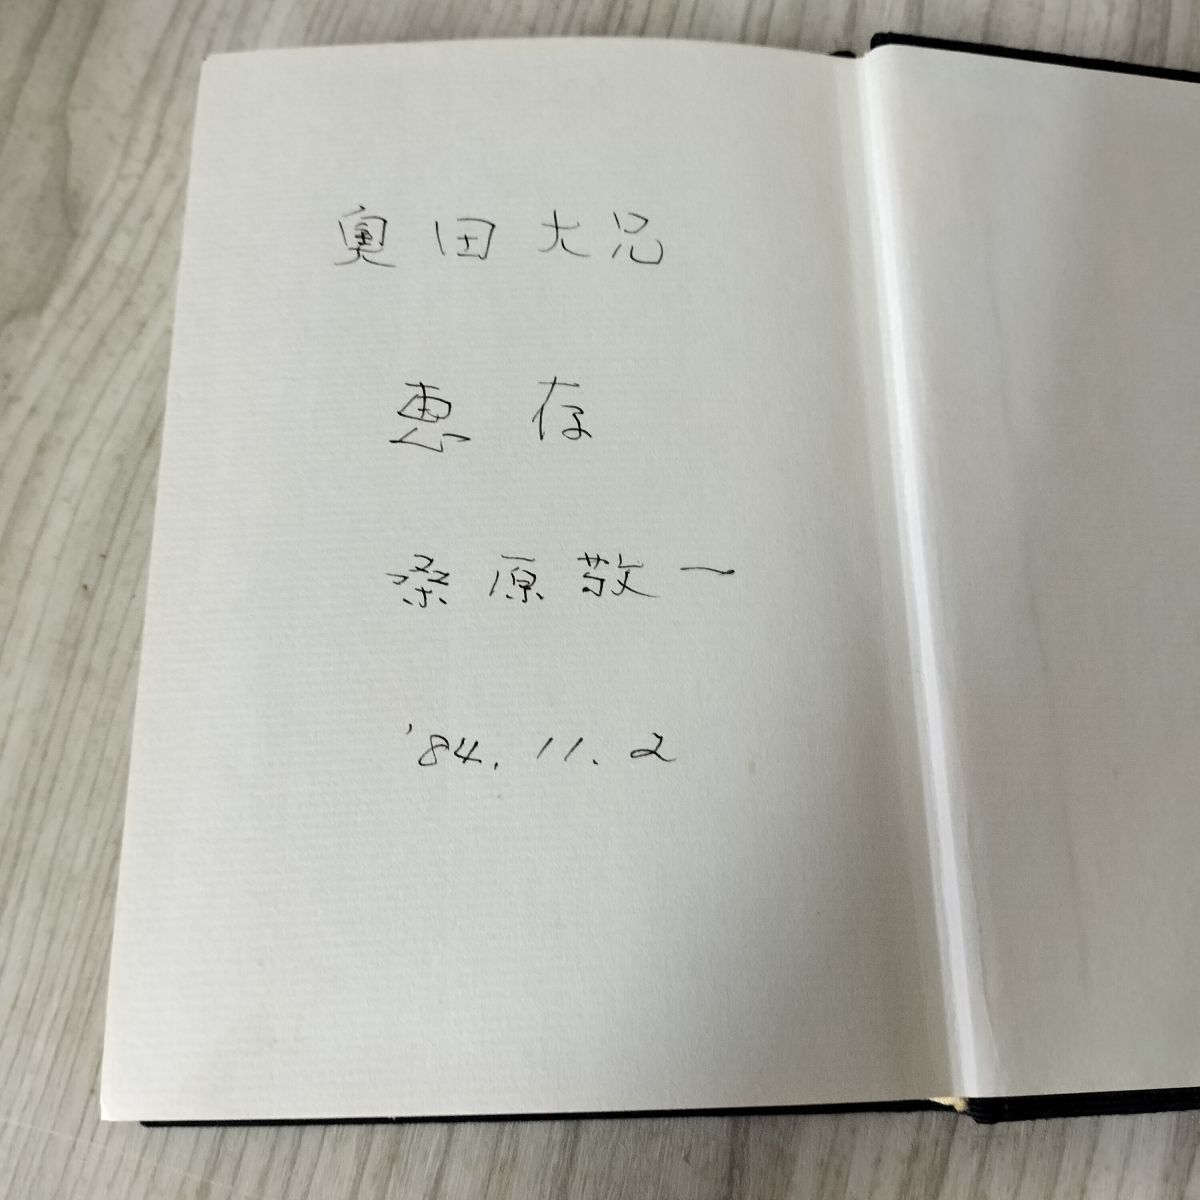 奥田大兄
恵存
桑原敬一
'84.11.2